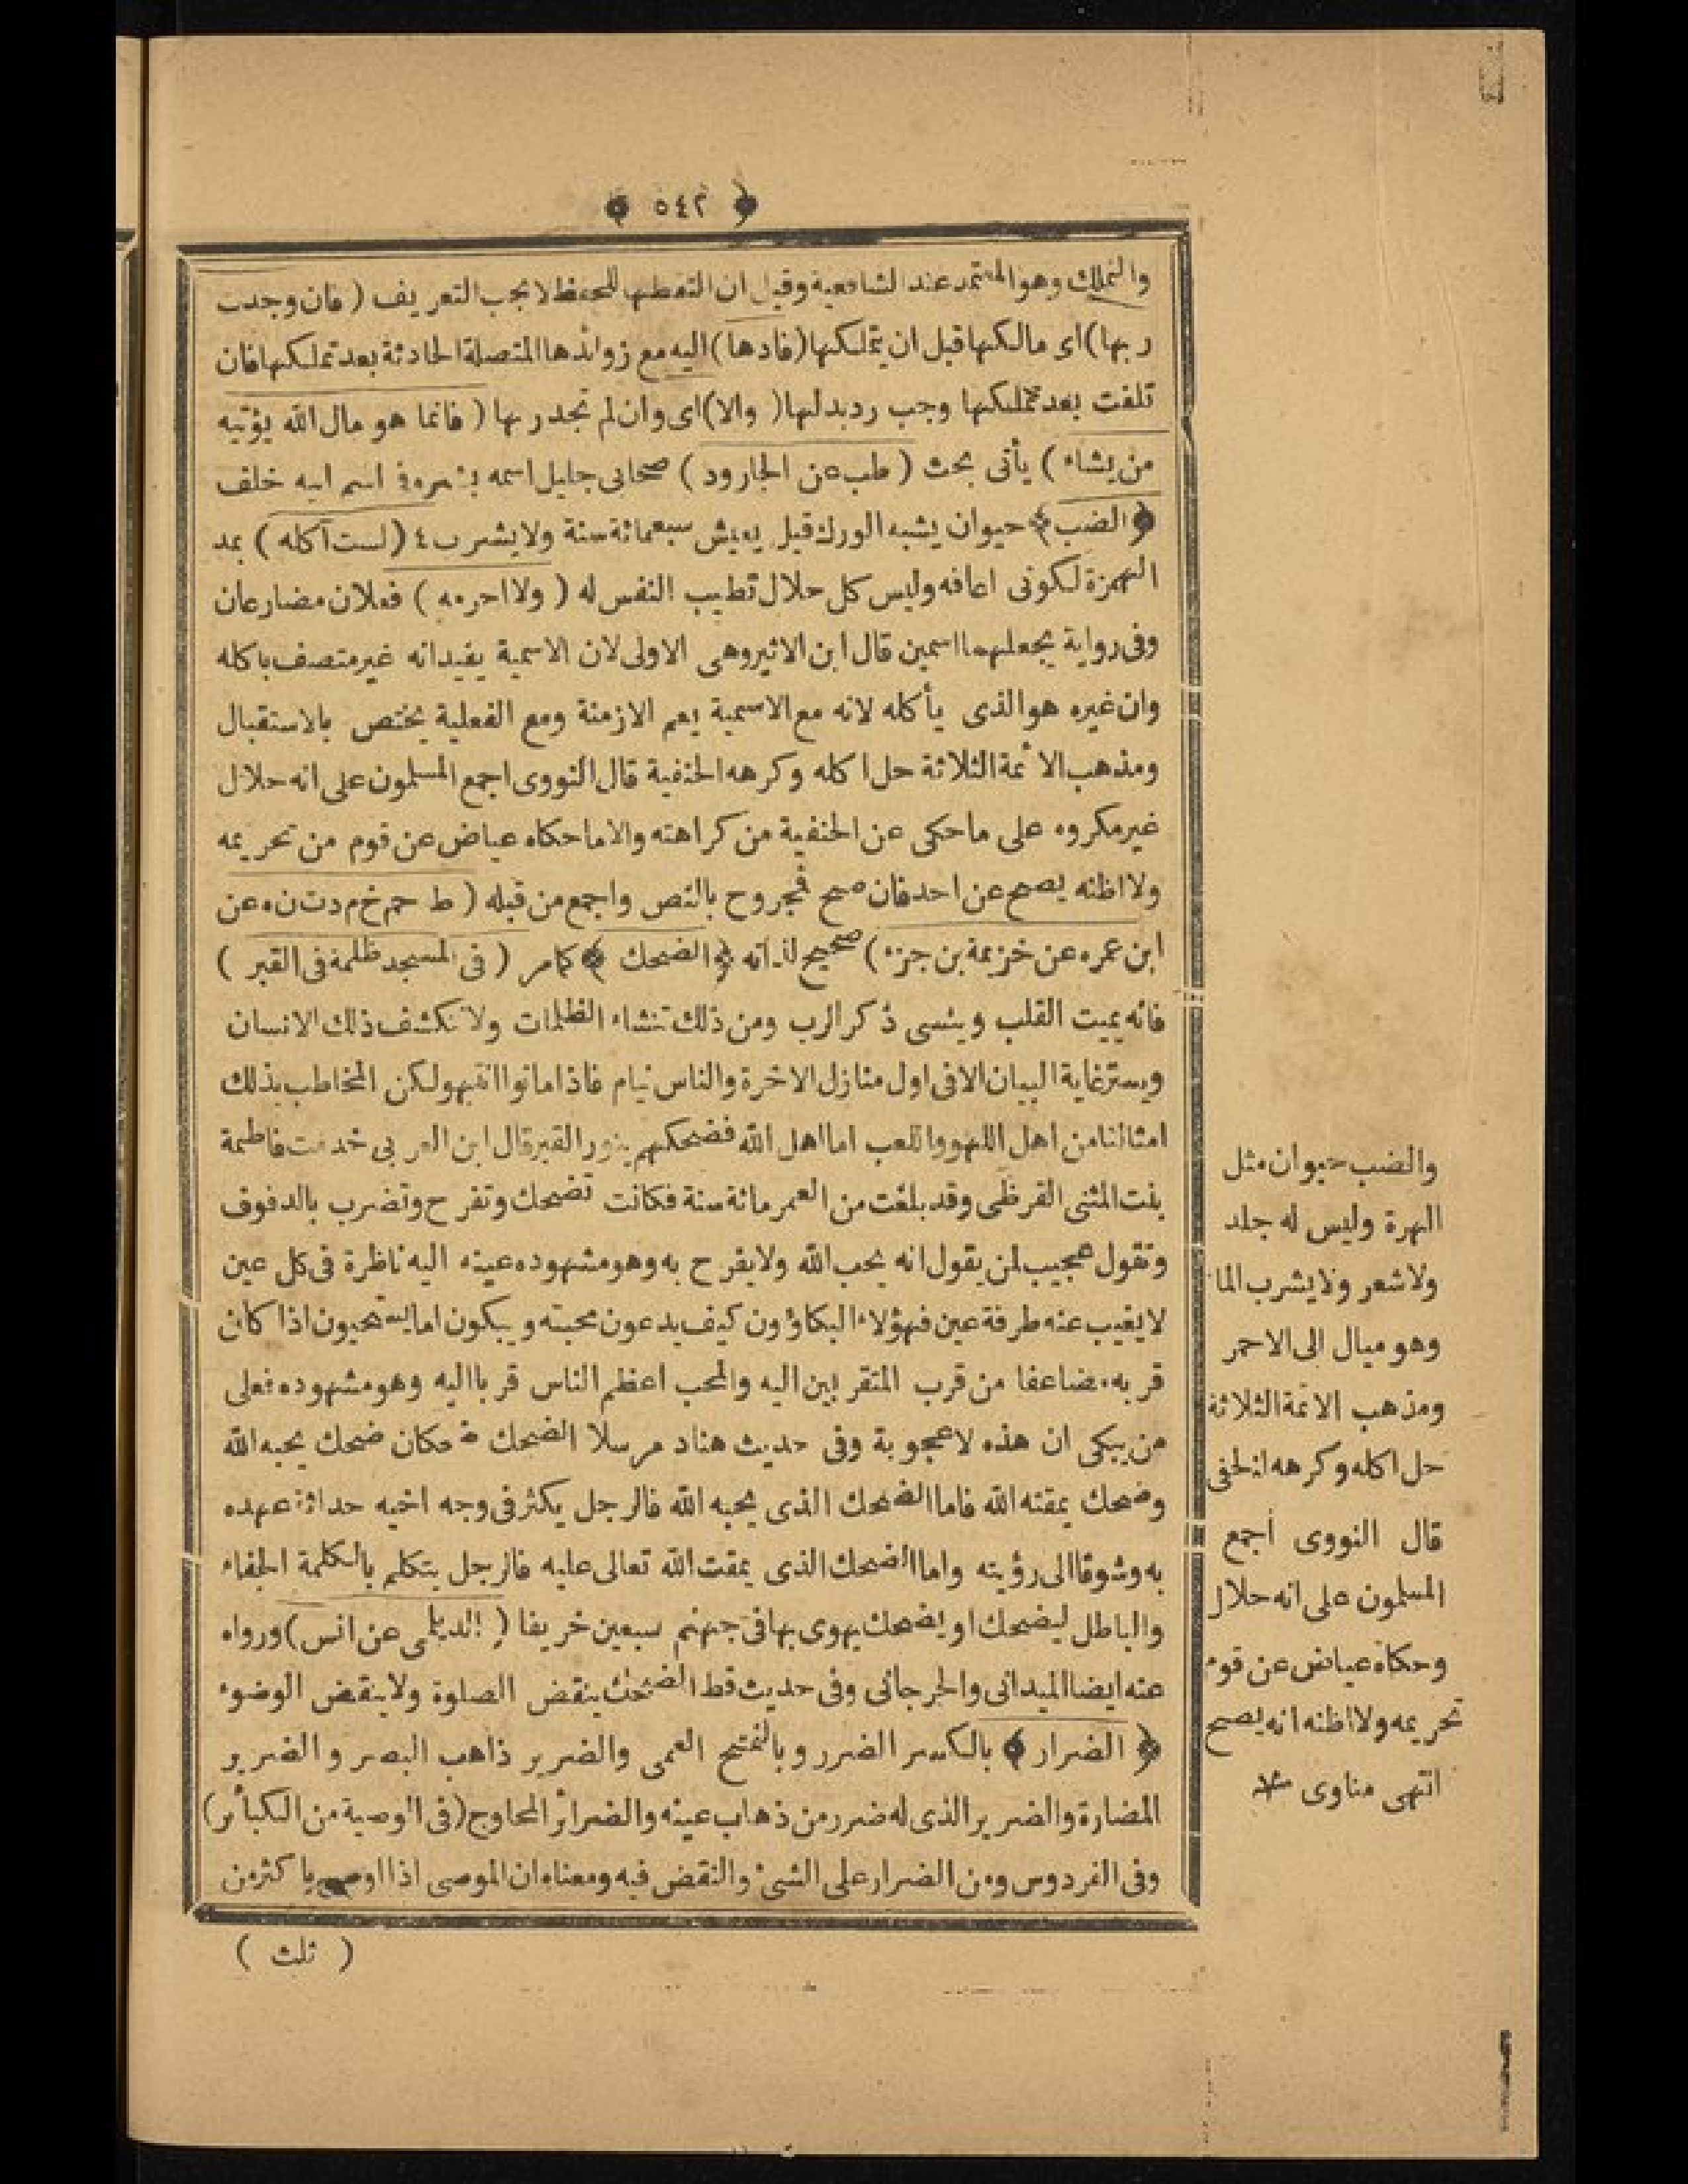 ﴿ ٥٤٢ ﴾
والتملك وهو المعتمد عند الشافعية وقيل ان التقطها للحفظ لا يجب التعريف ( فان وجدت
ربها) اى مالكها قبل ان يتملكها (فادها) اليه مع زوائدها المتصلة الحادثة بعد تملكها فان
تلفت بعد تملكها وجب رد بدلها ( والا) اى وان لم تجد ربها ( فانما هو مال الله يؤتيه
من يشاء ) يأتى بحث ( طب عن الجارود ) صحابى جليل اسمه بشر وفى اسم ابيه خلف
﴿ الضب ﴾ حيوان يشبه الورل قيل يعيش سبعمائة سنة ولا يشرب ٤ (لست آكله ) بمد
الهمزة لكونى اعافه وليس كل حلال تطيب النفس له ( ولا احرمه ) فعلان مضارعان
وفى رواية يجعلهما اسمين قال ابن الاثير وهى الاولى لان الاسمية يفيد انه غير متصف باكله
وان غيره هو الذى يأكله لانه مع الاسمية يعم الازمنة ومع الفعلية يختص بالاستقبال
ومذهب الائمة الثلاثة حل اكله وكرهه الحنفية قال النووى اجمع المسلمون على انه حلال
غير مكروه على ما حكى عن الحنفية من كراهته والا ما حكاه عياض عن قوم من تحريمه
ولا اظنه يصح عن احد فان صح فمجروح بالنص واجمع من قبله ( ط حم خ م د ت ن ه عن
ابن عمر ه عن خزيمة بن جزء ) صحيح لذاته ﴿ الضحك ﴾ كمامر ( فى المسجد ظلمة فى القبر )
فانه يميت القلب وينسى ذكر الرب ومن ذلك تنشاء الظلمات ولا تنكشف ذلك الانسان
ويستر غاية البيان الا فى اول منازل الاخرة والناس نيام فاذا ماتوا انتبهوا لكن المخاطب بذلك
امثالنا من اهل اللهو واللعب اما اهل الله فضحكهم ينور القبر قال ابن العربى خدمت فاطمة
بنت المثنى القرظى وقد بلغت من العمر مائة سنة فكانت تضحك وتفرح وتضرب بالدفوف
وتقول عجيب لمن يقول انه يحب الله ولا يفرح به وهو مشهوده عينه اليه ناظرة فى كل عين
لا يغيب عنه طرفة عين فهؤلاء البكاؤون كيف يدعون محبته ويبكون اما يستحيون اذا كان
قربه مضاعفا من قرب المتقربين اليه والمحب اعظم الناس قربا اليه وهو مشهوده فعلى
من يبكى ان هذه لاعجوبة وفى حديث هناد مرسلا الضحك ضحكان ضحك يحبه الله
وضحك يمقته الله فاما الضحك الذى يحبه الله فالرجل يكثر فى وجه اخيه حداثة عهده
به وشوقا الى رؤيته واما الضحك الذى يمقت الله تعالى عليه فالرجل يتكلم بالكلمة الجفاء
والباطل ليضحك او يضحك يهوى بها فى جهنم سبعين خريفا ( الديلمى عن انس ) ورواه
عنه ايضا الميدانى والجرجانى وفى حديث قط الضحك ينقض الصلوة ولا ينقض الوضوء
﴿ الضرار ﴾ بالكسر الضرر وبالفتح العمى والضرير ذاهب البصر والضرير
المضارة والضرير الذى له ضرر من ذهاب عينه والضرائر المحاويج (فى الوصية من الكبائر)
وفى الفردوس ومن الضرار على الشئ والنقض فيه ومعناه ان الموصى اذا اوصى باكثر من
( ثلث )
والضب حيوان مثل
الهرة وليس له جلد
ولا شعر ولا يشرب الما
وهو ميال الى الاحمر
ومذهب الائمة الثلاثة
حل اكله وكرهه الحنفى
قال النووى أجمع
المسلمون على انه حلال
وحكاه عياض عن قوم
تحريمه ولا اظنه انه يصح
انتهى مناوى